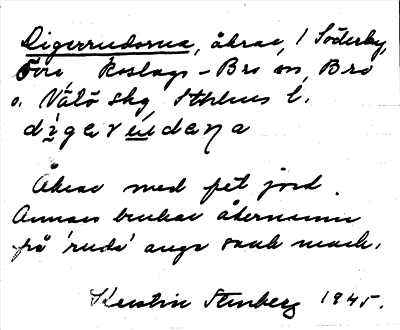 Digerrudorna, åkrar, i Söderby,
Roslags-Bro sn, Bro
o. Vätö skg, Sthlms l.
Åkrar med fet jord.
Annars brukar åkernamn
på 'ruda' ange vank mark.
Kerstin Stenberg 1945.